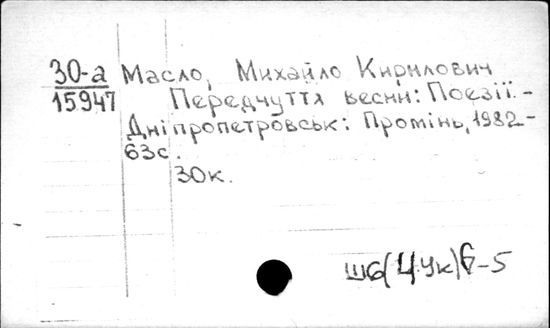 30-а Масло, Михайло Кирилович
15947 Передчуття весни: Поезії.-
Дніпропетровськ: Промінь, 1982-
63с.
30к.
Ш6(4Ук)6-5